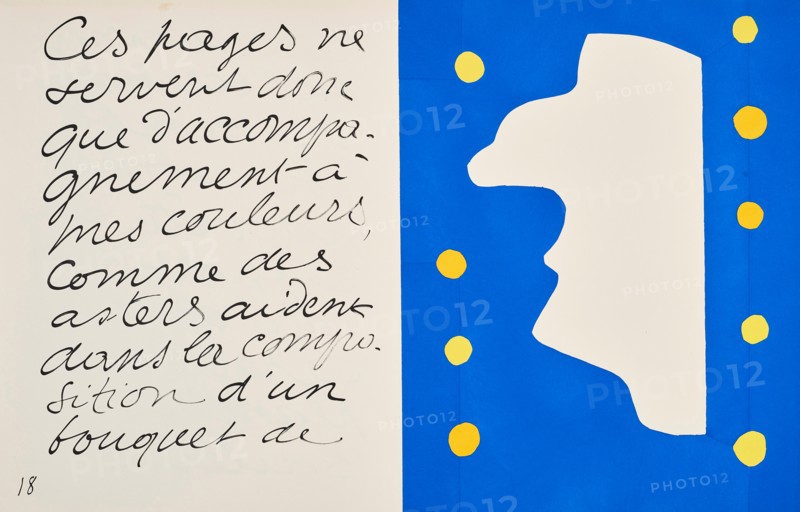 Ces pages ne
servent donc
que d'accompa-
gnement à
mes couleurs,
comme des
asters aident
dans la compo-
sition d'un
bouquet de
18
PHOTO12